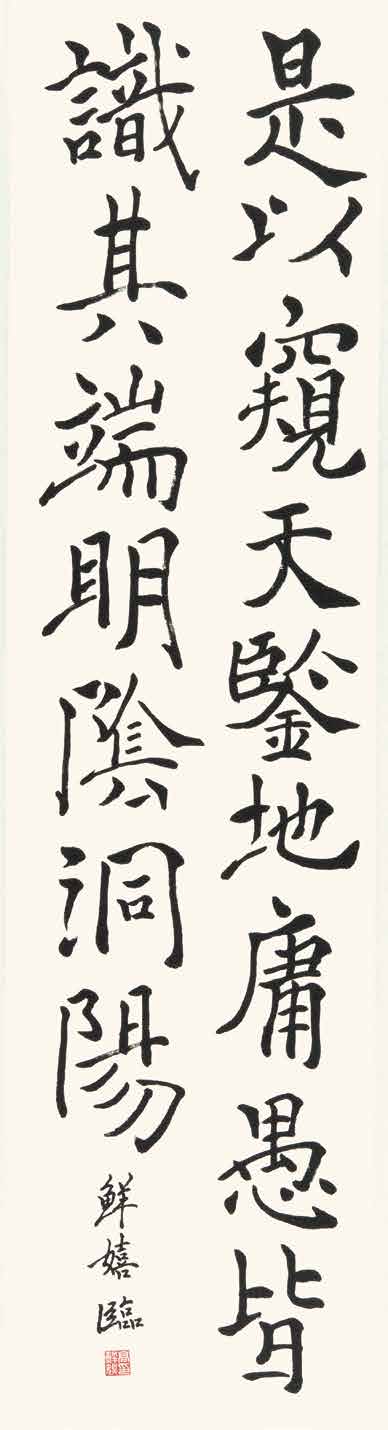 是以窺天鑒地庸愚皆
識其端明陰洞陽
鮮嬉臨